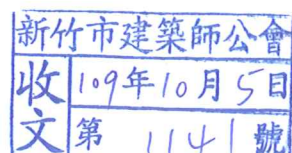 新竹市建築師公會
收文
109年10月5日
第 1141 號